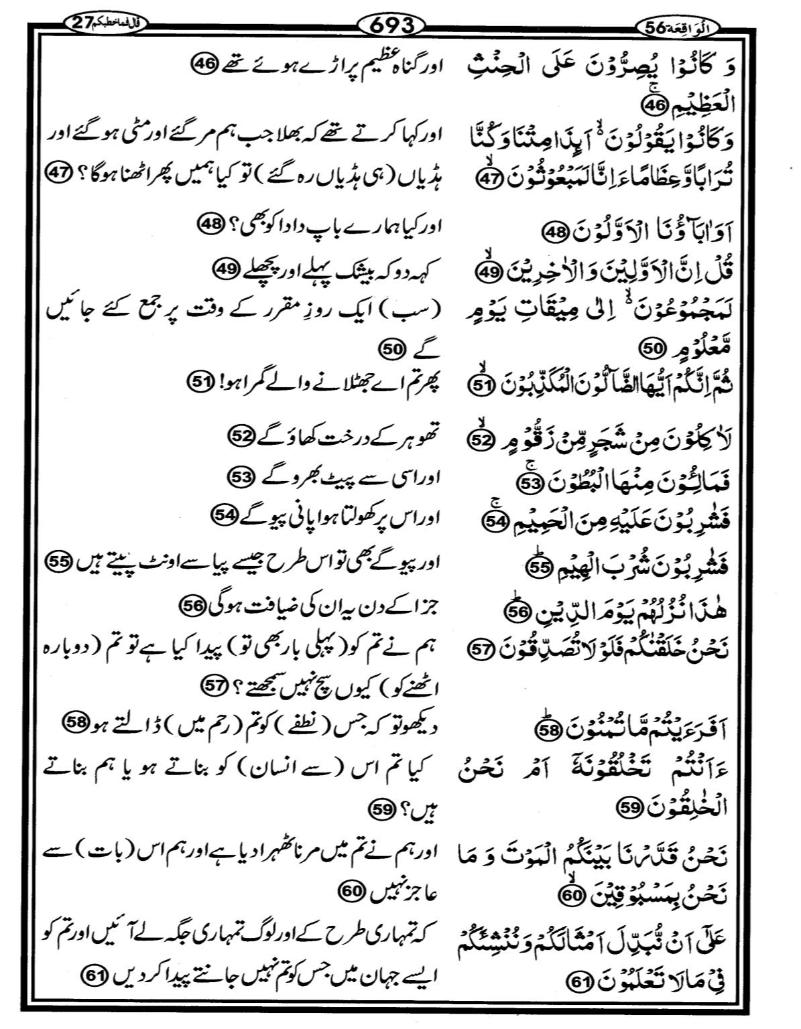 الواقعة 56
693
قال فما خطبكم 27
وَ كَانُوۡا يُصِرُّوۡنَ عَلَى الۡحِنۡثِ
الۡعَظِيۡمِۚ 46
اور گناہ عظیم پر اڑے ہوئے تھے 46
وَكَانُوۡا يَقُوۡلُوۡنَ ۙ اَٮِٕذَا مِتۡنَا وَكُنَّا
تُرَابًا وَّعِظَامًا ءَاِنَّا لَمَبۡعُوۡثُوۡنَۙ 47
اور کہا کرتے تھے کہ بھلا جب ہم مر گئے اور مٹی ہو گئے اور
ہڈیاں (ہی ہڈیاں رہ گئے) تو کیا ہمیں پھر اٹھنا ہوگا؟ 47
اَوَاٰبَآؤُنَا الۡاَوَّلُوۡنَ 48
اور کیا ہمارے باپ دادا کو بھی؟ 48
قُلۡ اِنَّ الۡاَوَّلِيۡنَ وَالۡاٰخِرِيۡنَۙ 49
کہہ دو کہ بیشک پہلے اور پچھلے 49
لَمَجۡمُوۡعُوۡنَ ۙ اِلٰى مِيۡقَاتِ يَوۡمٍ
مَّعۡلُوۡمٍ 50
(سب) ایک روزِ مقرر کے وقت پر جمع کئے جائیں
گے 50
ثُمَّ اِنَّكُمۡ اَيُّهَا الضَّآلُّوۡنَ الۡمُكَذِّبُوۡنَۙ 51
پھر تم اے جھٹلانے والے گمراہو! 51
لَاٰكِلُوۡنَ مِنۡ شَجَرٍ مِّنۡ زَقُّوۡمٍۙ 52
تھوہر کے درخت کھاؤ گے 52
فَمَالِـُٔوۡنَ مِنۡهَا الۡبُطُوۡنَۚ 53
اور اسی سے پیٹ بھرو گے 53
فَشٰرِبُوۡنَ عَلَيۡهِ مِنَ الۡحَمِيۡمِۚ 54
اور اس پر کھولتا ہوا پانی پیو گے 54
فَشٰرِبُوۡنَ شُرۡبَ الۡهِيۡمِؕ 55
اور پیو گے بھی تو اس طرح جیسے پیاسے اونٹ پیتے ہیں 55
هٰذَا نُزُلُهُمۡ يَوۡمَ الدِّيۡنِؕ 56
جزا کے دن یہ ان کی ضیافت ہوگی 56
نَحۡنُ خَلَقۡنٰكُمۡ فَلَوۡلَا تُصَدِّقُوۡنَ 57
ہم نے تم کو (پہلی بار بھی تو) پیدا کیا ہے تو تم (دوبارہ
اٹھنے کو) کیوں سچ نہیں سمجھتے؟ 57
اَفَرَءَيۡتُمۡ مَّا تُمۡنُوۡنَؕ 58
دیکھو تو کہ جس (نطفے) کو تم (رحم میں) ڈالتے ہو 58
ءَاَنۡتُمۡ تَخۡلُقُوۡنَهٗۤ اَمۡ نَحۡنُ
الۡخٰلِقُوۡنَ 59
کیا تم اس (سے انسان) کو بناتے ہو یا ہم بناتے
ہیں؟ 59
نَحۡنُ قَدَّرۡنَا بَيۡنَكُمُ الۡمَوۡتَ وَ مَا
نَحۡنُ بِمَسۡبُوۡقِيۡنَۙ 60
اور ہم نے تم میں مرنا ٹھہرا دیا ہے اور ہم اس (بات) سے
عاجز نہیں 60
عَلٰٓى اَنۡ نُّبَدِّلَ اَمۡثَالَكُمۡ وَنُنۡشِئَكُمۡ
فِىۡ مَا لَا تَعۡلَمُوۡنَ 61
کہ تمہاری طرح کے اور لوگ تمہاری جگہ لے آئیں اور تم کو
ایسے جہان میں جس کو تم نہیں جانتے پیدا کر دیں 61